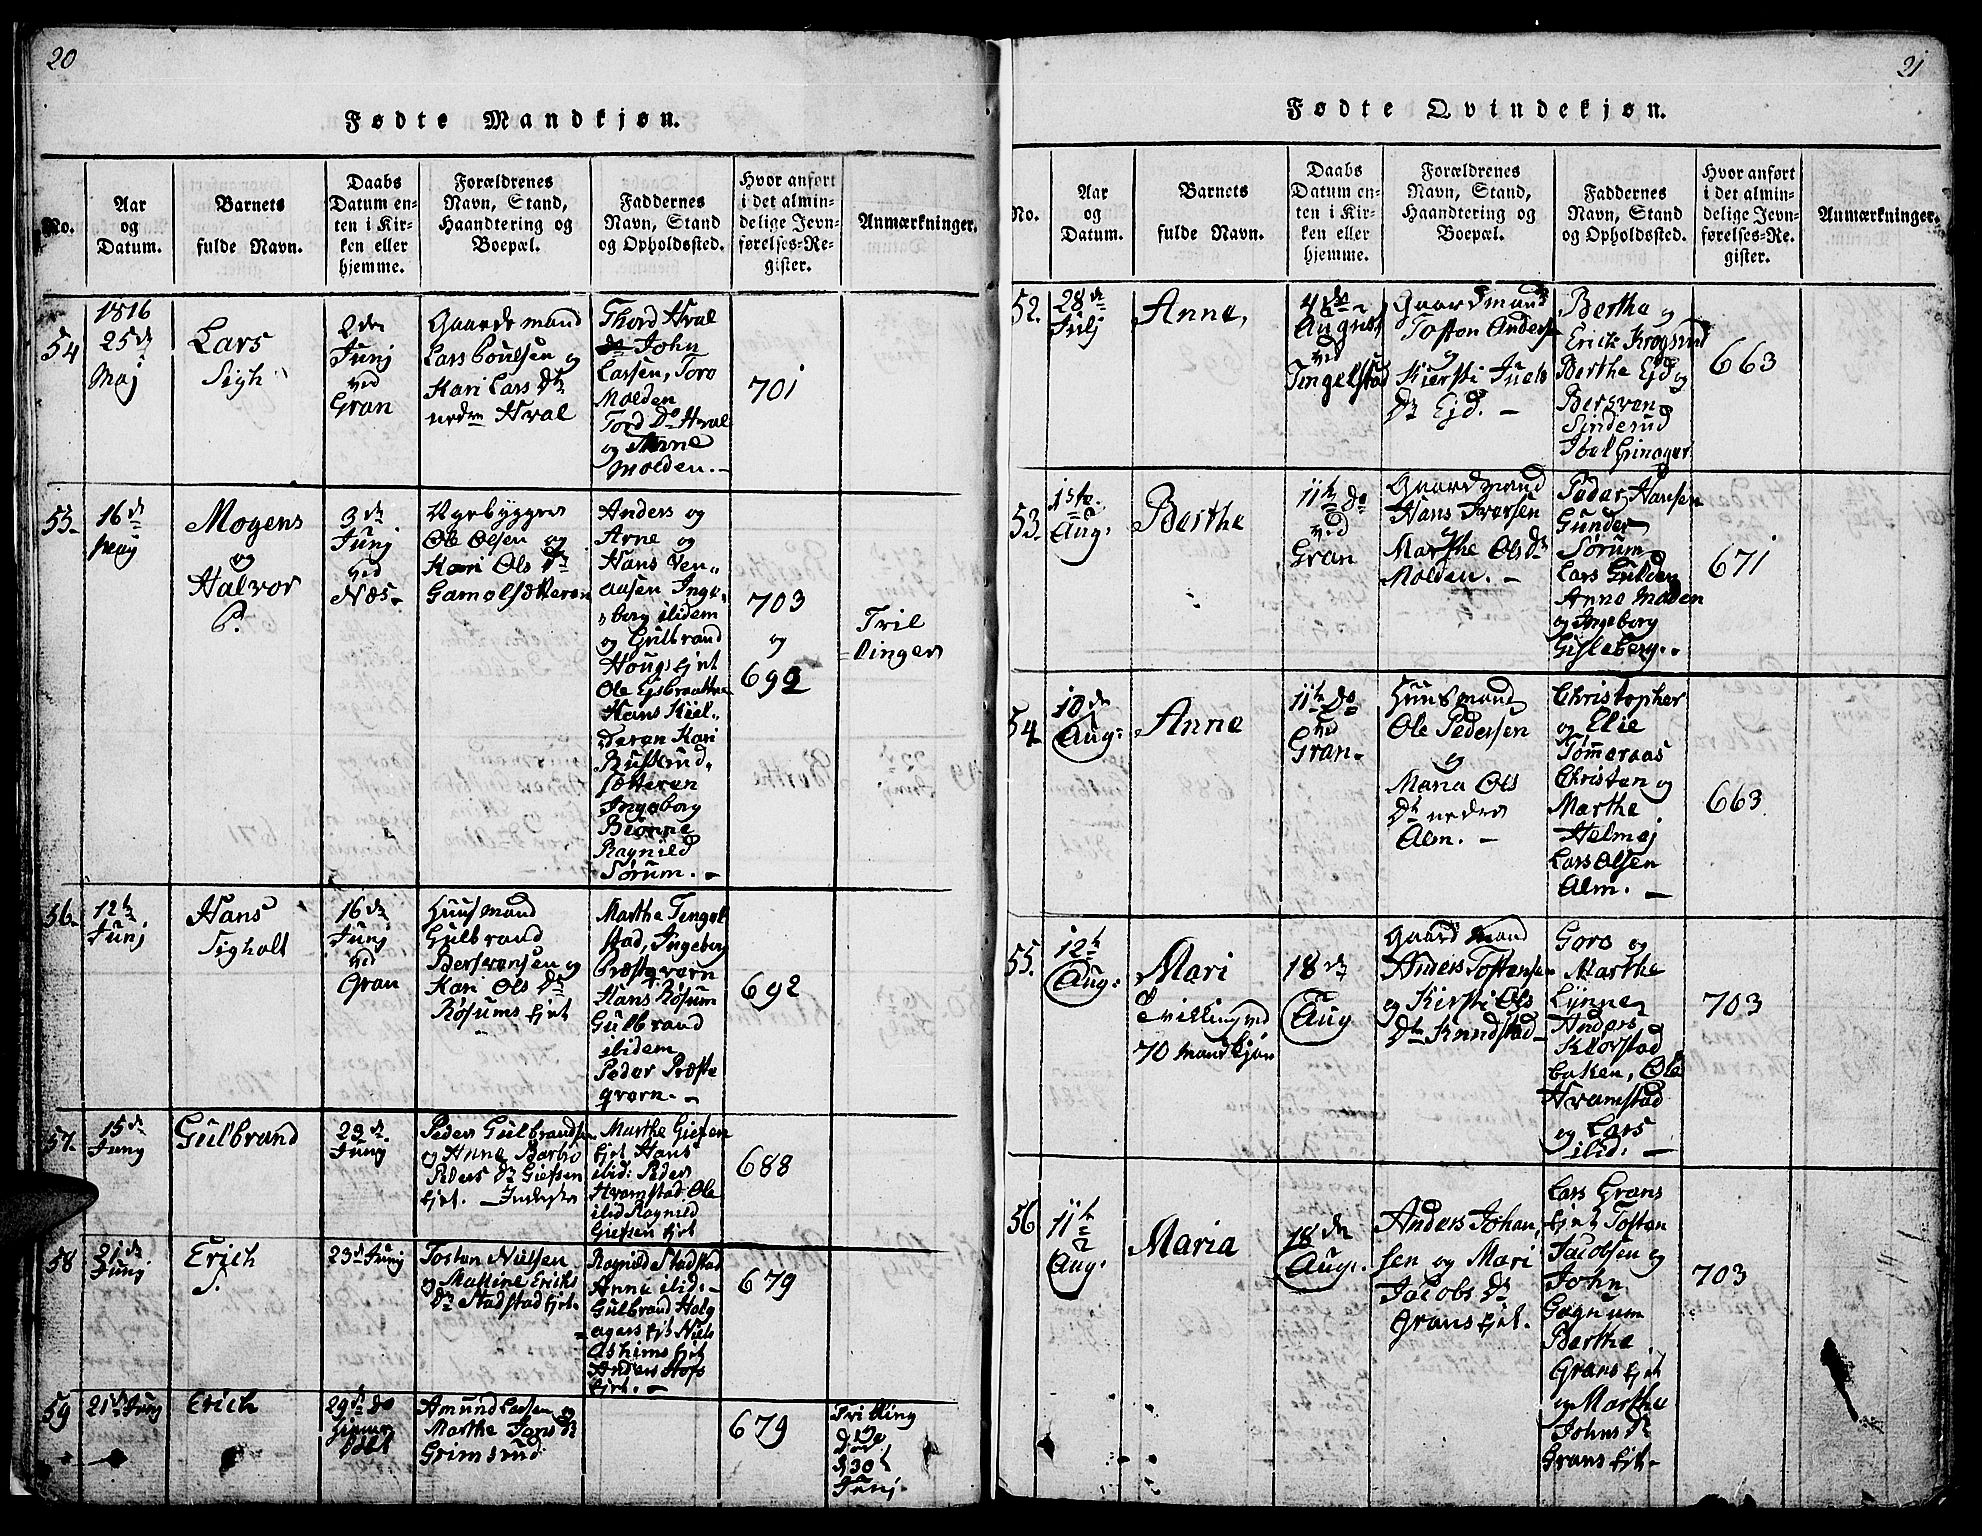 20
Fødte Mandkjøn.
No.
Aar
og
Datum.
Barnets
fulde Navn.
Daabs
Datum en-
ten i Kir-
ken eller
hjemme.
Forældrenes
Navn, Stand,
Haandtering og
Boepæl.
Faddernes
Navn, Stand
og Opholdssted.
Hvor anført
i det almin-
delige Jevn-
førelses-Re-
gister.
Anmærkninger.
54
1816
25de
Maj
Lars
Sigh
2den
Junj
ved
Gran
Gaardemand
Lars Poulsen og
Kari Lars Dr
nedre Hval
Thord Hval
John
Larsen, Toro
Molden
Tord Do Hval
og Anne
Molden. -
701
55-
16de
Maj
Mogens
og
Halvor
3de
Junj
ved
Næs-
Ole Olsen og
Kari Ols Dr
Anders og
Arne og
Hans Ven„
aasen Inge„
borg ilidem
og Gulbrand
Hougs Ejet
Hans Kiel„
deren Kari
Ruslund„
sætteren
Ingeborg
Bronne
Ragnild
Sørum. -
703
og
692
Tvil
linger
56-
12te
Junj
Hans
Sigholt
16de
Junj
ved
Gran
Huusmand
Gulbrand
Bersvensen og
Kari Ols Dr
Røsums Ejet
Marthe Tingel
stad, Ingeborg
Præstqvern
Hans Røsum
Gulbrand
ibidem
Peder Præste
qvern. -
692
57-
15de
Junj
Gulbrand
23de
Junj
Peder Gulbrandsen
og Anne Barbo
Peders Dr Giefsen
Ejet. -
Marthe Giefsen
Ejet Hans
ibid: Peder
Hvamstad Ole
ibid Ragnild
Giefsen Ejet
688
58
21de
Junj
Erich
S.
23de Junj
Tosten Nielsen
og Mattine Erichs
Dr Stadstad Ejet.
Ragnild Stadstad
Anne ibid: -
Gulbrand Helg
agers Ejet Niels
Ashims Ejet
Anders Hofs
Ejet. -
679
59
21de Junj
Erich
29de Do
Amund Larsen og
Marthe Jons Dr
Grimsrud
679
Tvilling
Døde
d 30t
Junj
21
Fødte Qvindekjøn.
No.
Aar
og
Datum.
Barnets
fulde Navn.
Daabs
Datum en-
ten i Kir-
ken eller
hjemme.
Forældrenes
Navn, Stand,
Haandtering og
Boepæl.
Faddernes
Navn, Stand
og Opholdssted.
Hvor anført
i det almin-
delige Jevn-
førelses-Re-
gister.
Anmærkninger.
52.
28de
Julj
Anne,
4de
August
ved
Tingelstad
Gaardmand
Tosten Anders
og
Kiersti Juels
Dr Ejd. -
Berthe og
Erik Krogsrud
Berthe Ejd og
Bersven
Sinderud
Ibel Grinager
663
53.
1ste
Aug:
Berthe
11te Do
ved
Gran
Gaardmand
Hans Iversen
og
Marthe Ols Dr
Molden. -
Peder Hansen
Gunder
Sørum
Lars Gulden
Anne Molden
og Ingeborg
Gisleberg. -
671
54
10de
Aug:
Anne
11te Do
ved
Gran.
Huusmand
Ole Pedersen
og
Maria Ols
Dr nedre
Alm. -
Christopher
og Elie
Tømmeraas
Christen og
Marthe
Helmej
Lars Olsen
Alm. -
663
55.
12te
Aug:
Mari
Tvilling ved
70 Mandkjøn
18de
Aug
Gaardmand
Anders Tostense
og Kirsti Ols
Dr Knudstad -
Goro og
Marthe
Lynne
Anders
Klorstad
bakken, Ole
Hvamstad
og Lars
ilid: -
703
56
11te
Aug:
Maria
18de
Aug:
Anders Johan„
sen og Mari
Jacobs Dr
Grans Ejet.
Lars Grans
Ejet Tosten
Jacobsen og
John
Gagnum
Berthe
Grans Ejet
og Marthe
Johns Dr
Grans Ejet -
703